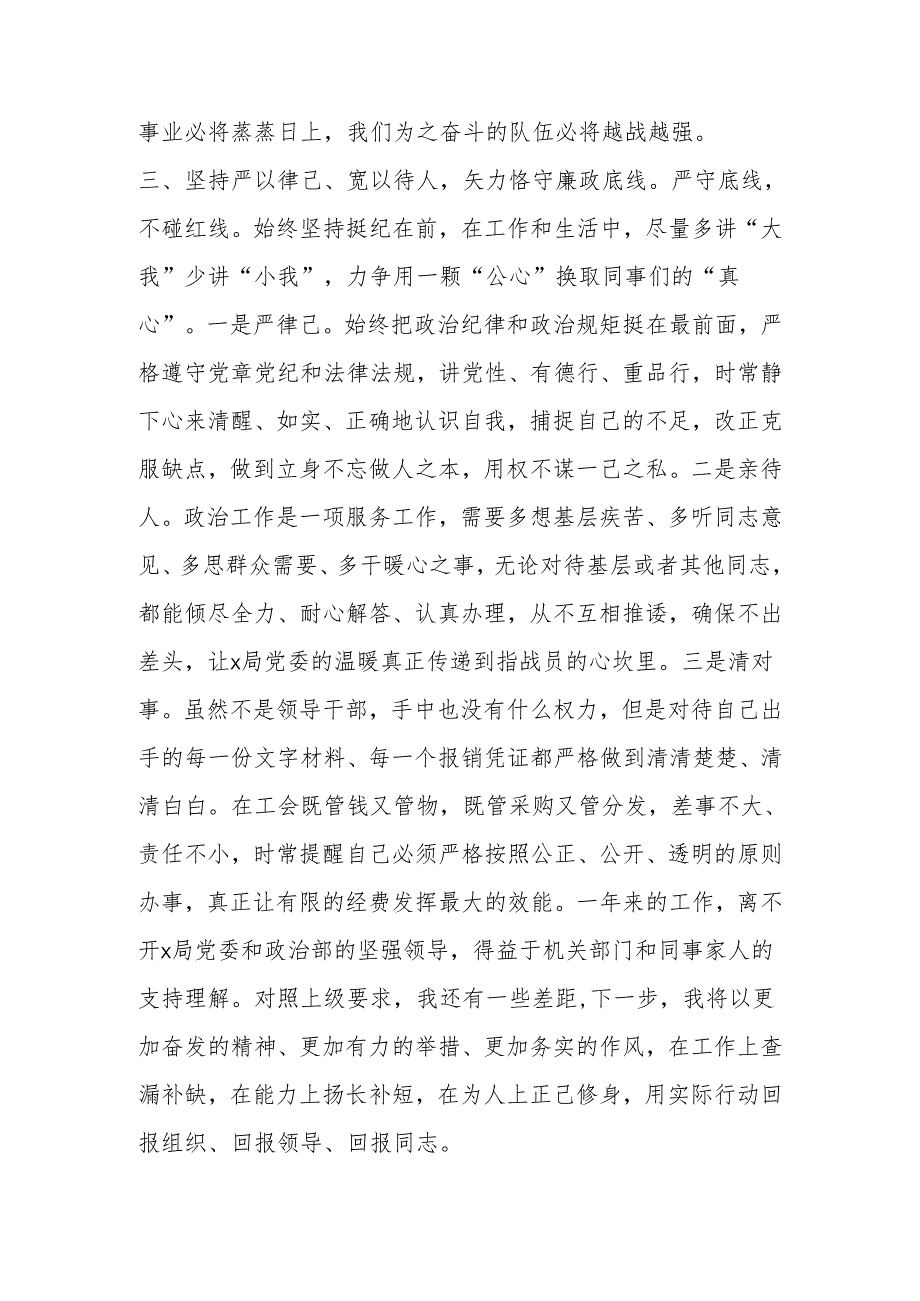 事业必将蒸蒸日上，我们为之奋斗的队伍必将越战越强。
三、坚持严以律己、宽以待人，矢力恪守廉政底线。严守底线，
不碰红线。始终坚持挺纪在前，在工作和生活中，尽量多讲“大
我”少讲“小我”，力争用一颗“公心”换取同事们的“真
心”。一是严律己。始终把政治纪律和政治规矩挺在最前面，严
格遵守党章党纪和法律法规，讲党性、有德行、重品行，时常静
下心来清醒、如实、正确地认识自我，捕捉自己的不足，改正克
服缺点，做到立身不忘做人之本，用权不谋一己之私。二是亲待
人。政治工作是一项服务工作，需要多想基层疾苦、多听同志意
见、多思群众需要、多干暖心之事，无论对待基层或者其他同志，
都能倾尽全力、耐心解答、认真办理，从不互相推诿，确保不出
差头，让x局党委的温暖真正传递到指战员的心坎里。三是清对
事。虽然不是领导干部，手中也没有什么权力，但是对待自己出
手的每一份文字材料、每一个报销凭证都严格做到清清楚楚、清
清白白。在工会既管钱又管物，既管采购又管分发，差事不大、
责任不小，时常提醒自己必须严格按照公正、公开、透明的原则
办事，真正让有限的经费发挥最大的效能。一年来的工作，离不
开x局党委和政治部的坚强领导，得益于机关部门和同事家人的
支持理解。对照上级要求，我还有一些差距,下一步，我将以更
加奋发的精神、更加有力的举措、更加务实的作风，在工作上查
漏补缺，在能力上扬长补短，在为人上正己修身，用实际行动回
报组织、回报领导、回报同志。